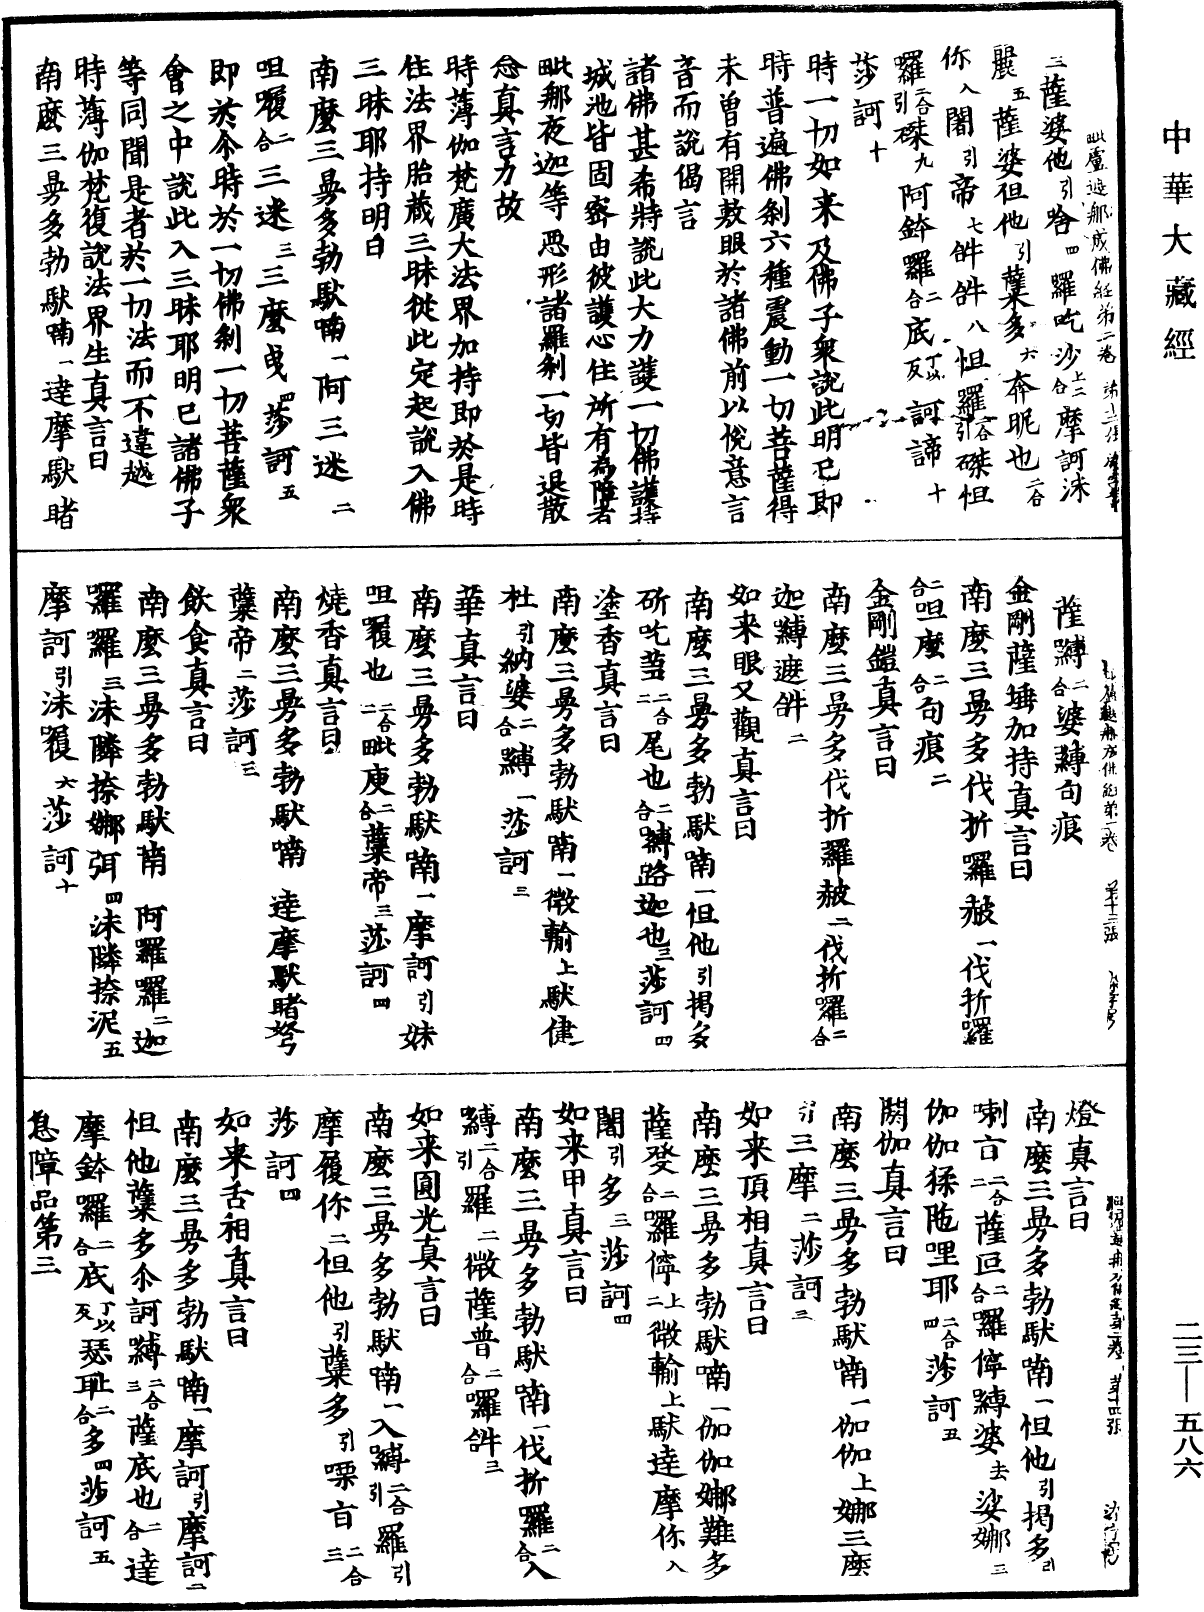 中華大藏經
二三—五八六
三薩婆他引唅四羅吃沙上二合摩訶沬
麗五薩婆但他引蘖多六奔昵也二合
你八闍引帝七𤙖𤙖八怛羅二合引磔怛
羅二合引磔九阿鉢羅二合底丁以反訶諦十
莎訶十
時一切如来及佛子衆說此明已即
時普遍佛剎六種震動一切菩薩得
未曾有開敷眼於諸佛前以悅意言
音而說偈言
諸佛甚希特說此大力護一切佛護持
城池皆固密由彼護心住所有為障者
毗那夜迦等惡形諸羅剎一切皆退散
念真言力故
時薄伽梵廣大法界加持即於是時
住法界胎藏三昧從此定起說入佛
三昧耶持明曰
南麼三曼多勃馱喃一阿三迷二
呾𠸪二合三迷三三麼曳四莎訶五
即於尒時於一切佛剎一切菩薩衆
會之中說此入三昧耶明已諸佛子
等同聞是者於一切法而不違越
時薄伽梵復說法界生真言曰
南麽三曼多勃馱喃一達摩馱睹
薩嚩二合婆嚩句痕
金剛薩埵加持真言曰
南麼三曼多伐折囉赧一伐折囉
二合呾麼二合句痕二
金剛鎧真言曰
南麼三曼多伐折囉赧二伐折囉二合
迦嚩遮𤙖二
如来眼又觀真言曰
南麼三曼多勃馱喃一怛他引揭多
斫吃芻二合二尾也二合嚩路迦也三莎訶四
塗香真言曰
南麼三曼多勃馱喃一微輸上馱健
杜引納婆二合嚩一莎訶三
華真言曰
南麼三曼多勃馱喃一摩訶引妹
呾囇也二合二毗庾二合蘖帝三莎訶四
燒香真言曰
南麼三曼多勃馱喃達摩馱睹弩
蘖帝二莎訶三
飲食真言曰
南麼三曼多勃馱喃阿羅羅二迦
囉羅三沬隣捺娜弭四沬隣捺泥五
摩訶引沬𠸪六莎訶十
燈真言曰
南麼三曼多勃馱喃一怛他引揭多引
喇旨二合二薩叵二合囉儜嚩婆去娑娜三
伽伽猱陁哩耶二合四莎訶五
閼伽真言曰
南麼三曼多勃馱喃一伽伽上娜三麼
引三摩二莎訶三
如来頂相真言曰
南麼三曼多勃馱喃一伽伽娜難多
薩發二合羅儜上二微輸上馱達摩你入
闍引多三莎訶四
如来甲真言曰
南麼三曼多勃馱喃一伐折囉二合入
嚩二合引羅二微薩普二合囉𤙖三
如来圓光真言曰
南麼三曼多勃馱喃一入嚩二合引羅引
摩𠸪你二怛他引蘖多引㗚旨二合三
莎訶四
如来舌相真言曰
南麼三曼多勃馱喃一摩訶引摩訶二
怛他蘖多尒訶嚩二合三薩底也二合達
摩鉢囉二合底丁以反瑟耻二合多四莎訶五
息障品第三